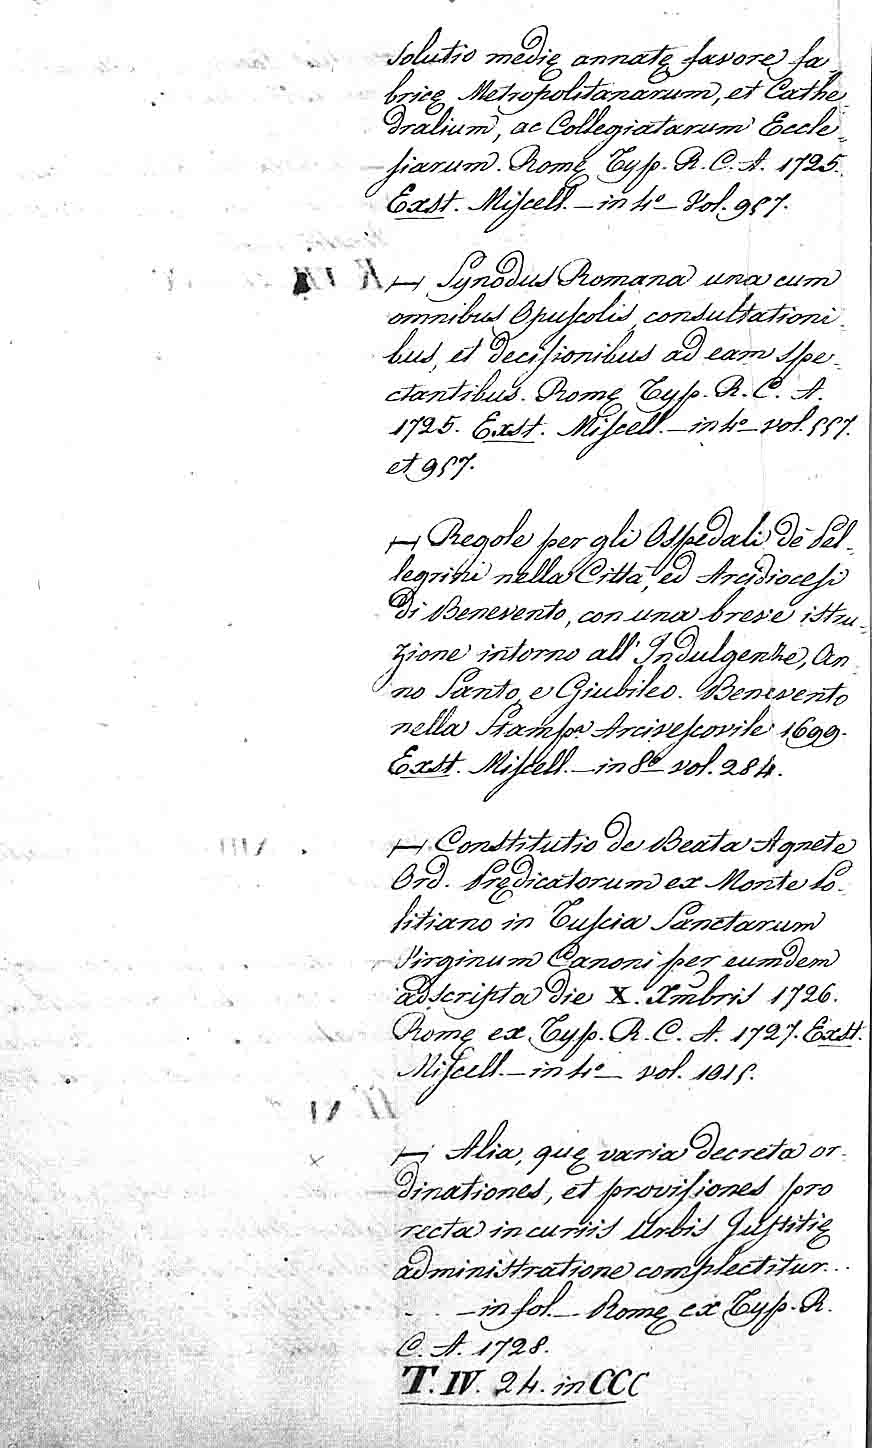 solutio medię annatę favore fa¸
bricę Metropolitanarum, et Cathe¸
dralium, ac Collegiatarum Eccle¸
siarum. Romę Typ. R. C. A. 1725.
Exst. Miscell. – in 4º – Vol. 957.
— Synodus Romana una cum
omnibus Opuscolis, consultationi¸
bus, et decisionibus ad eam spe¸
ctantibus. Romę Typ. R. C. A.
1725. Exst. Miscell. – in 4º – vol. 557.
et 957.
— Regole per gli Ospedali de' Pel¸
legrini nella Città, ed Arcidiocesi
di Benevento, con una breve istru¸
zione intorno all' Indulgenze, An¸
no Santo, e Giubileo. Benevento
nella Stampª Arcivescovile 1699.
Exst. Miscell. – in 8º vol. 284.
— Constitutio de Beata Agnete
Ord. Prędicatorum ex Monte Po¸
litiano in Tuscia Sanctarum
Virginum Canoni per eumdem
adscripta die X. Xmbris 1726.
Romę ex Typ. R. C. A. 1727. Exst.
Miscell. – in 4º – vol. 1015.
— Alia, quę varia decreta or¸
dinationes, et provisiones pro
recta in curiis Urbis Justitię
administratione complectitur. . .
. . – in fol. – Romę ex Typ. R.
C. A. 1728.
T. IV. 24. in CCC